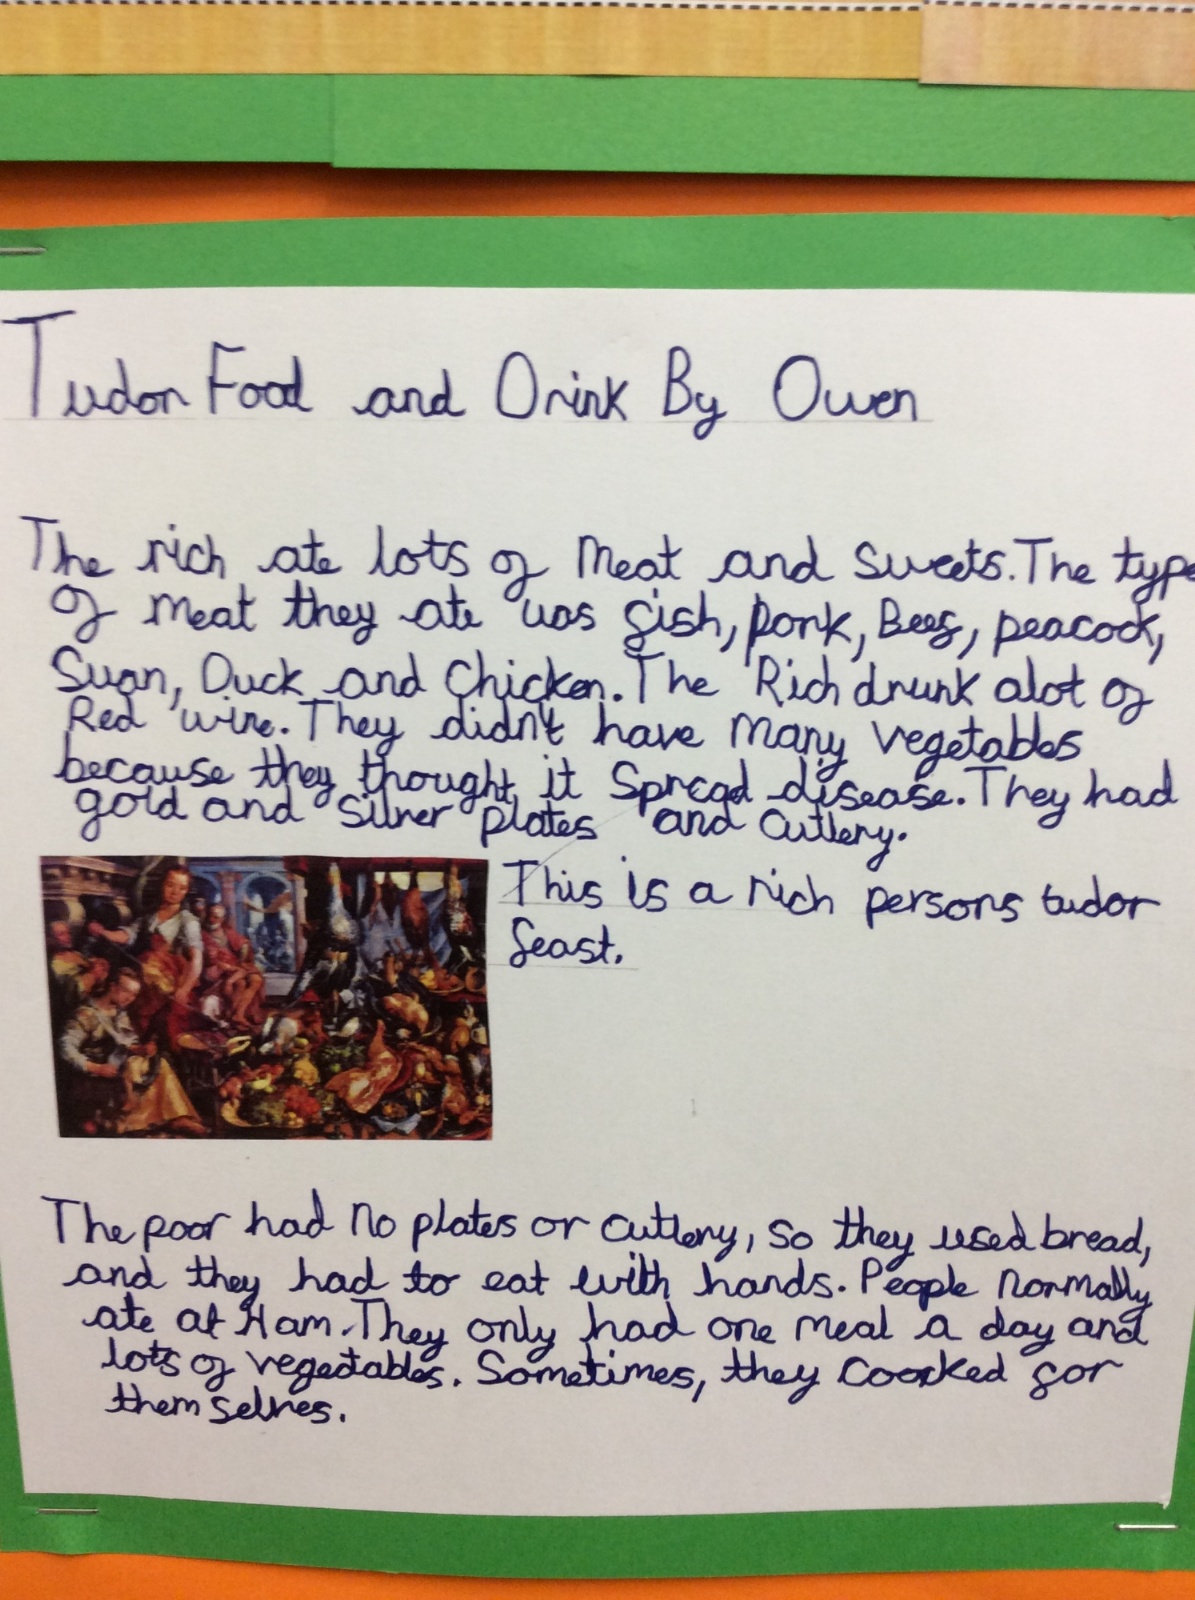 Tudor Food and Drink By Owen
The rich ate lots of Meat and Sweets. The type
of Meat they ate was fish, pork, Beef, peacock,
Swan, Duck and Chicken. The Rich drunk alot of
Red wine. They didn't have Many vegetables
because they thought it Spread disease. They had
gold and Silver plates and Cutlery.
This is a rich persons tudor
feast.
The poor had no plates or Cutlery, so they used bread,
and they had to eat with hands. People normally
ate at Ham. They only had one meal a day and
lots of vegetables. Sometimes, they coocked for
themselves.